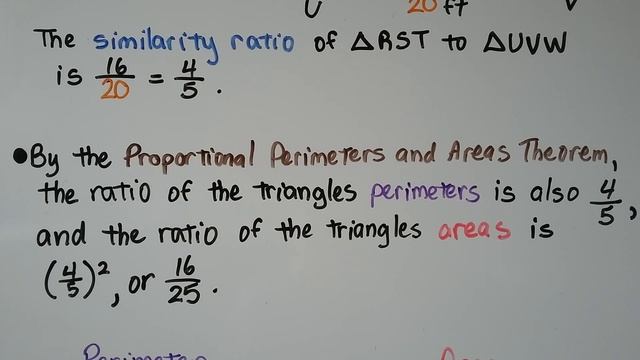 U 20 ft V
The similarity ratio of △RST to △UVW
is 16/20 = 4/5.
•By the Proportional Perimeters and Areas Theorem,
the ratio of the triangles perimeters is also 4/5,
and the ratio of the triangles areas is
(4/5)², or 16/25.
Perimeter